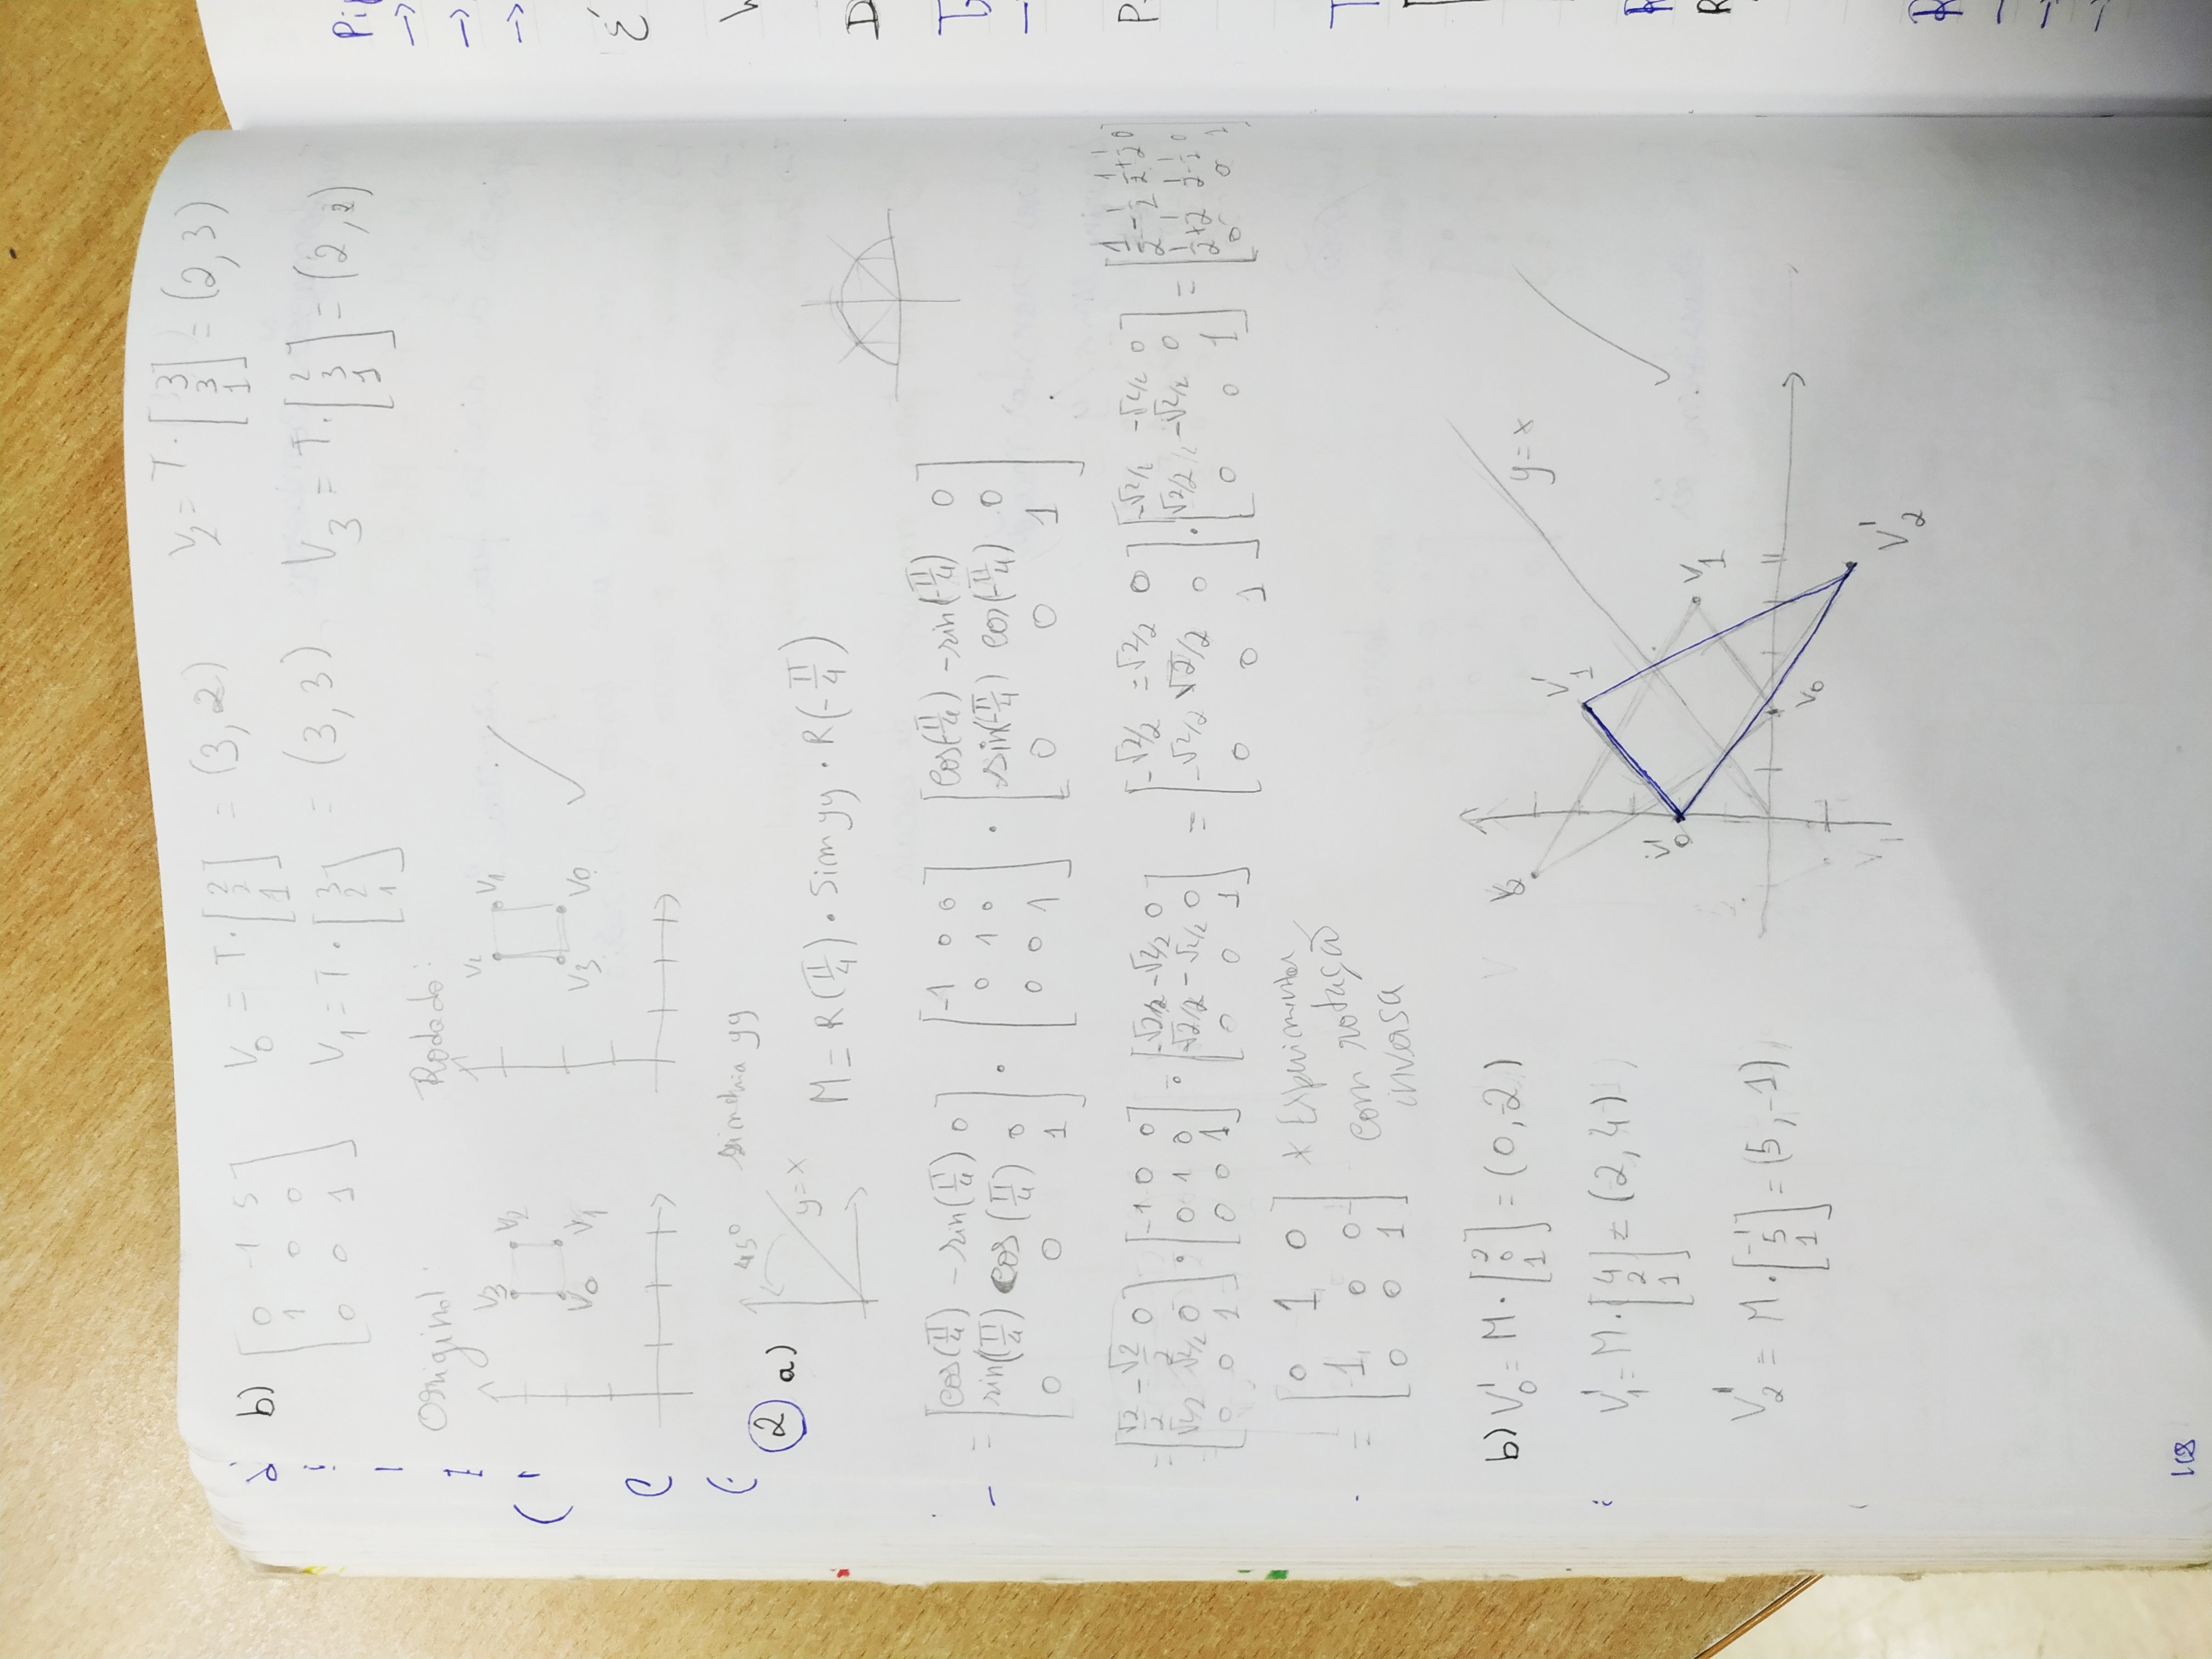 b) [0 -1 5; 1 0 0; 0 0 1]
V0 = T · [2; 2; 1] = (3, 2)
V2 = T · [3; 3; 1] = (2, 3)
V1 = T · [3; 2; 1] = (3, 3)
V3 = T · [2; 3; 1] = (2, 2)
Original: Rodado:
V3 V2
V0 V1
V2 V1
V3 V0
② a) 45º simetria yy
y=x
M = R(π/4) · Sim yy · R(-π/4)
= [cos(π/4) -sin(π/4) 0; sin(π/4) cos(π/4) 0; 0 0 1] · [-1 0 0; 0 1 0; 0 0 1] · [cos(-π/4) -sin(-π/4) 0; sin(-π/4) cos(-π/4) 0; 0 0 1]
= [√2/2 -√2/2 0; √2/2 √2/2 0; 0 0 1] · [-1 0 0; 0 1 0; 0 0 1] · [-√2/2 -√2/2 0; √2/2 -√2/2 0; 0 0 1] = [-√2/2 -√2/2 0; -√2/2 √2/2 0; 0 0 1] · [-√2/2 -√2/2 0; √2/2 -√2/2 0; 0 0 1] = [1/2-1/2 1/2+1/2 0; 1/2+1/2 1/2-1/2 0; 0 0 1]
= [0 1 0; 1 0 0; 0 0 1]
* Experimentar
com rotação
inversa
b) V'0 = M · [2; 0; 1] = (0, 2)
V'1 = M · [4; 2; 1] = (2, 4)
V'2 = M · [-1; 5; 1] = (5, -1)
V2
y=x
V'1
V'0
V1
V0
V'2
108